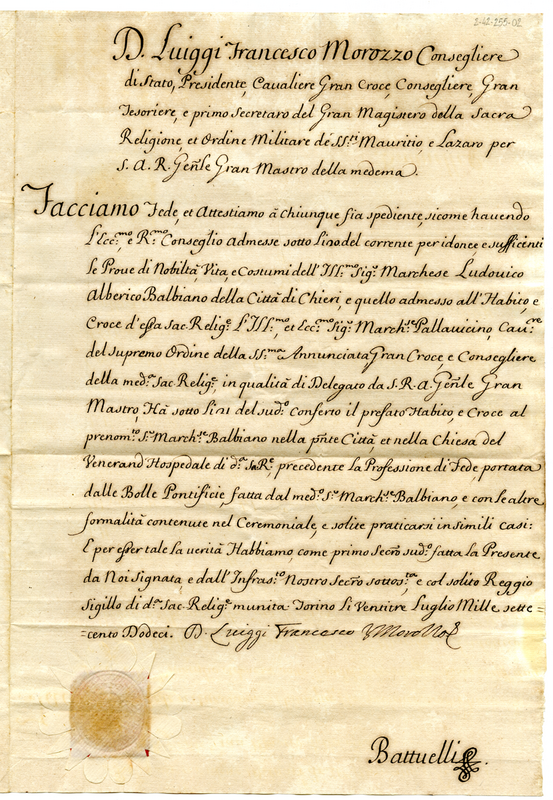 2-42-255-02
D. Luiggi Francesco Morozzo Consegliere
di Stato, Presidente, Cavaliere Gran Croce, Consegliere, Gran
Tesoriere, e primo Secretaro del Gran Magistero della Sacra
Religione, et Ordine Militare de SS.ti Mauritio, e Lazaro per
S. A. R. Gen̄le Gran Mastro della medema.
Facciamo Fede, et Attestiamo à chiunque sia spediente, sicome havendo
l'Ecc.mo, e R.mo Conseglio admesse sotto li 20 del corrente per idonee e sufficienti
le Prove di Nobiltà, Vita, e Costumi dell'Ill.mo Sig.r Marchese Ludovico
Alberico Balbiano della Città di Chieri, e quello admesso all'Habito, e
Croce d'essa Sac. Relig.e L'Ill.mo, et Ecc.mo Sig.r March.se Pallavicino, Cav.re
del supremo Ordine della SS.ma Annunciata Gran Croce, e Consegliere
della med.a Sac. Relig.e in qualità di Delegato da S. R. A. Gen̄le Gran
Mastro, Hà sotto li 21 del sud.o conferto il prefato Habito, e Croce al
prenom.to S.r March.se Balbiano nella pñte Città, et nella Chiesa del
Venerand Hospedale di d.a Sa Re, precedente la Professione di Fede, portata
dalle Bolle Pontificie, fatta dal med.o S.r March.se Balbiano, e con le altre
formalità contenute nel Ceremoniale, e solite praticarsi in simili casi:
E per esser tale la verità Habbiamo, come primo Secr̄o sud.o fatta la Presente
da Noi Signata, e dall'Infras.to Nostro Secr̄o sottos.ta, e col solito Reggio
Sigillo di d.a Sac. Relig.e munita. Torino Li Ventitre Luglio Mille sette=
=cento Dodeci. D. Luiggi Francesco Morozzo
Battuelli